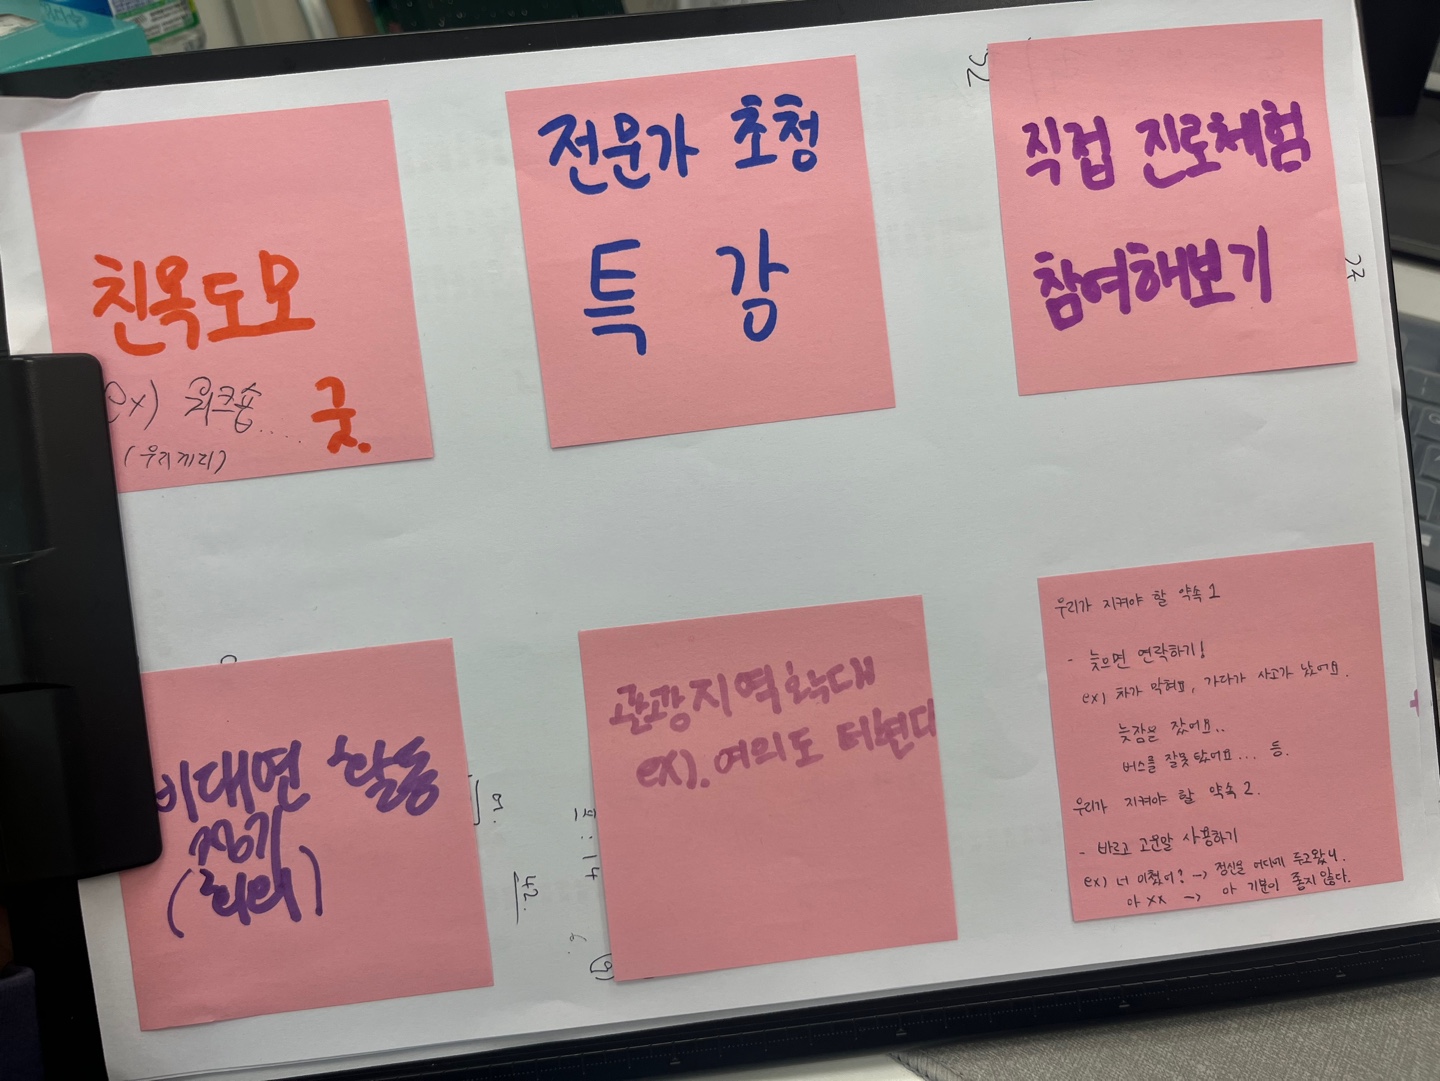 친목도모
ex) 워크숍....
굿.
(우리끼리)
전문가 초청
특 감
직접 진로체험
참여해보기
비대면 활동
장기
(회의)
관광지역확대
ex). 여의도 더현대
우리가 지켜야 할 약속 1
- 늦으면 연락하기!
ex) 차가 막혀요, 가다가 사고가 났어요.
늦잠을 잤어요..
버스를 잘못 탔어요... 등.
우리가 지켜야 할 약속 2.
- 바르고 고운말 사용하기
ex) 너 미쳤어? -> 정신을 어디에 두고왔니.
아 xx -> 아 기분이 좋지 않다.
42.